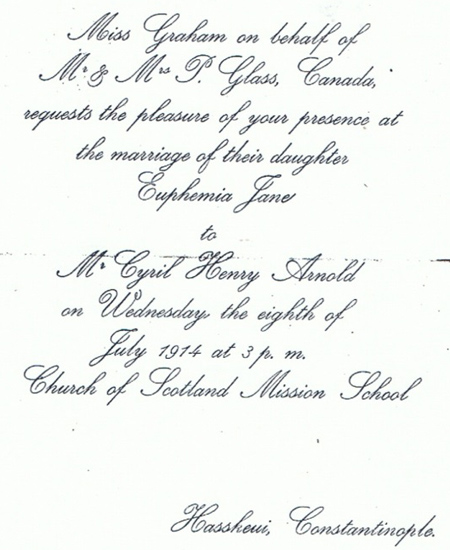 Miss Graham on behalf of
Mr & Mrs P. Glass, Canada,
requests the pleasure of your presence at
the marriage of their daughter
Euphemia Jane
to
Mr Cyril Henry Arnold
on Wednesday the eighth of
July 1914 at 3 p. m.
Church of Scotland Mission School
Hasskeui, Constantinople.